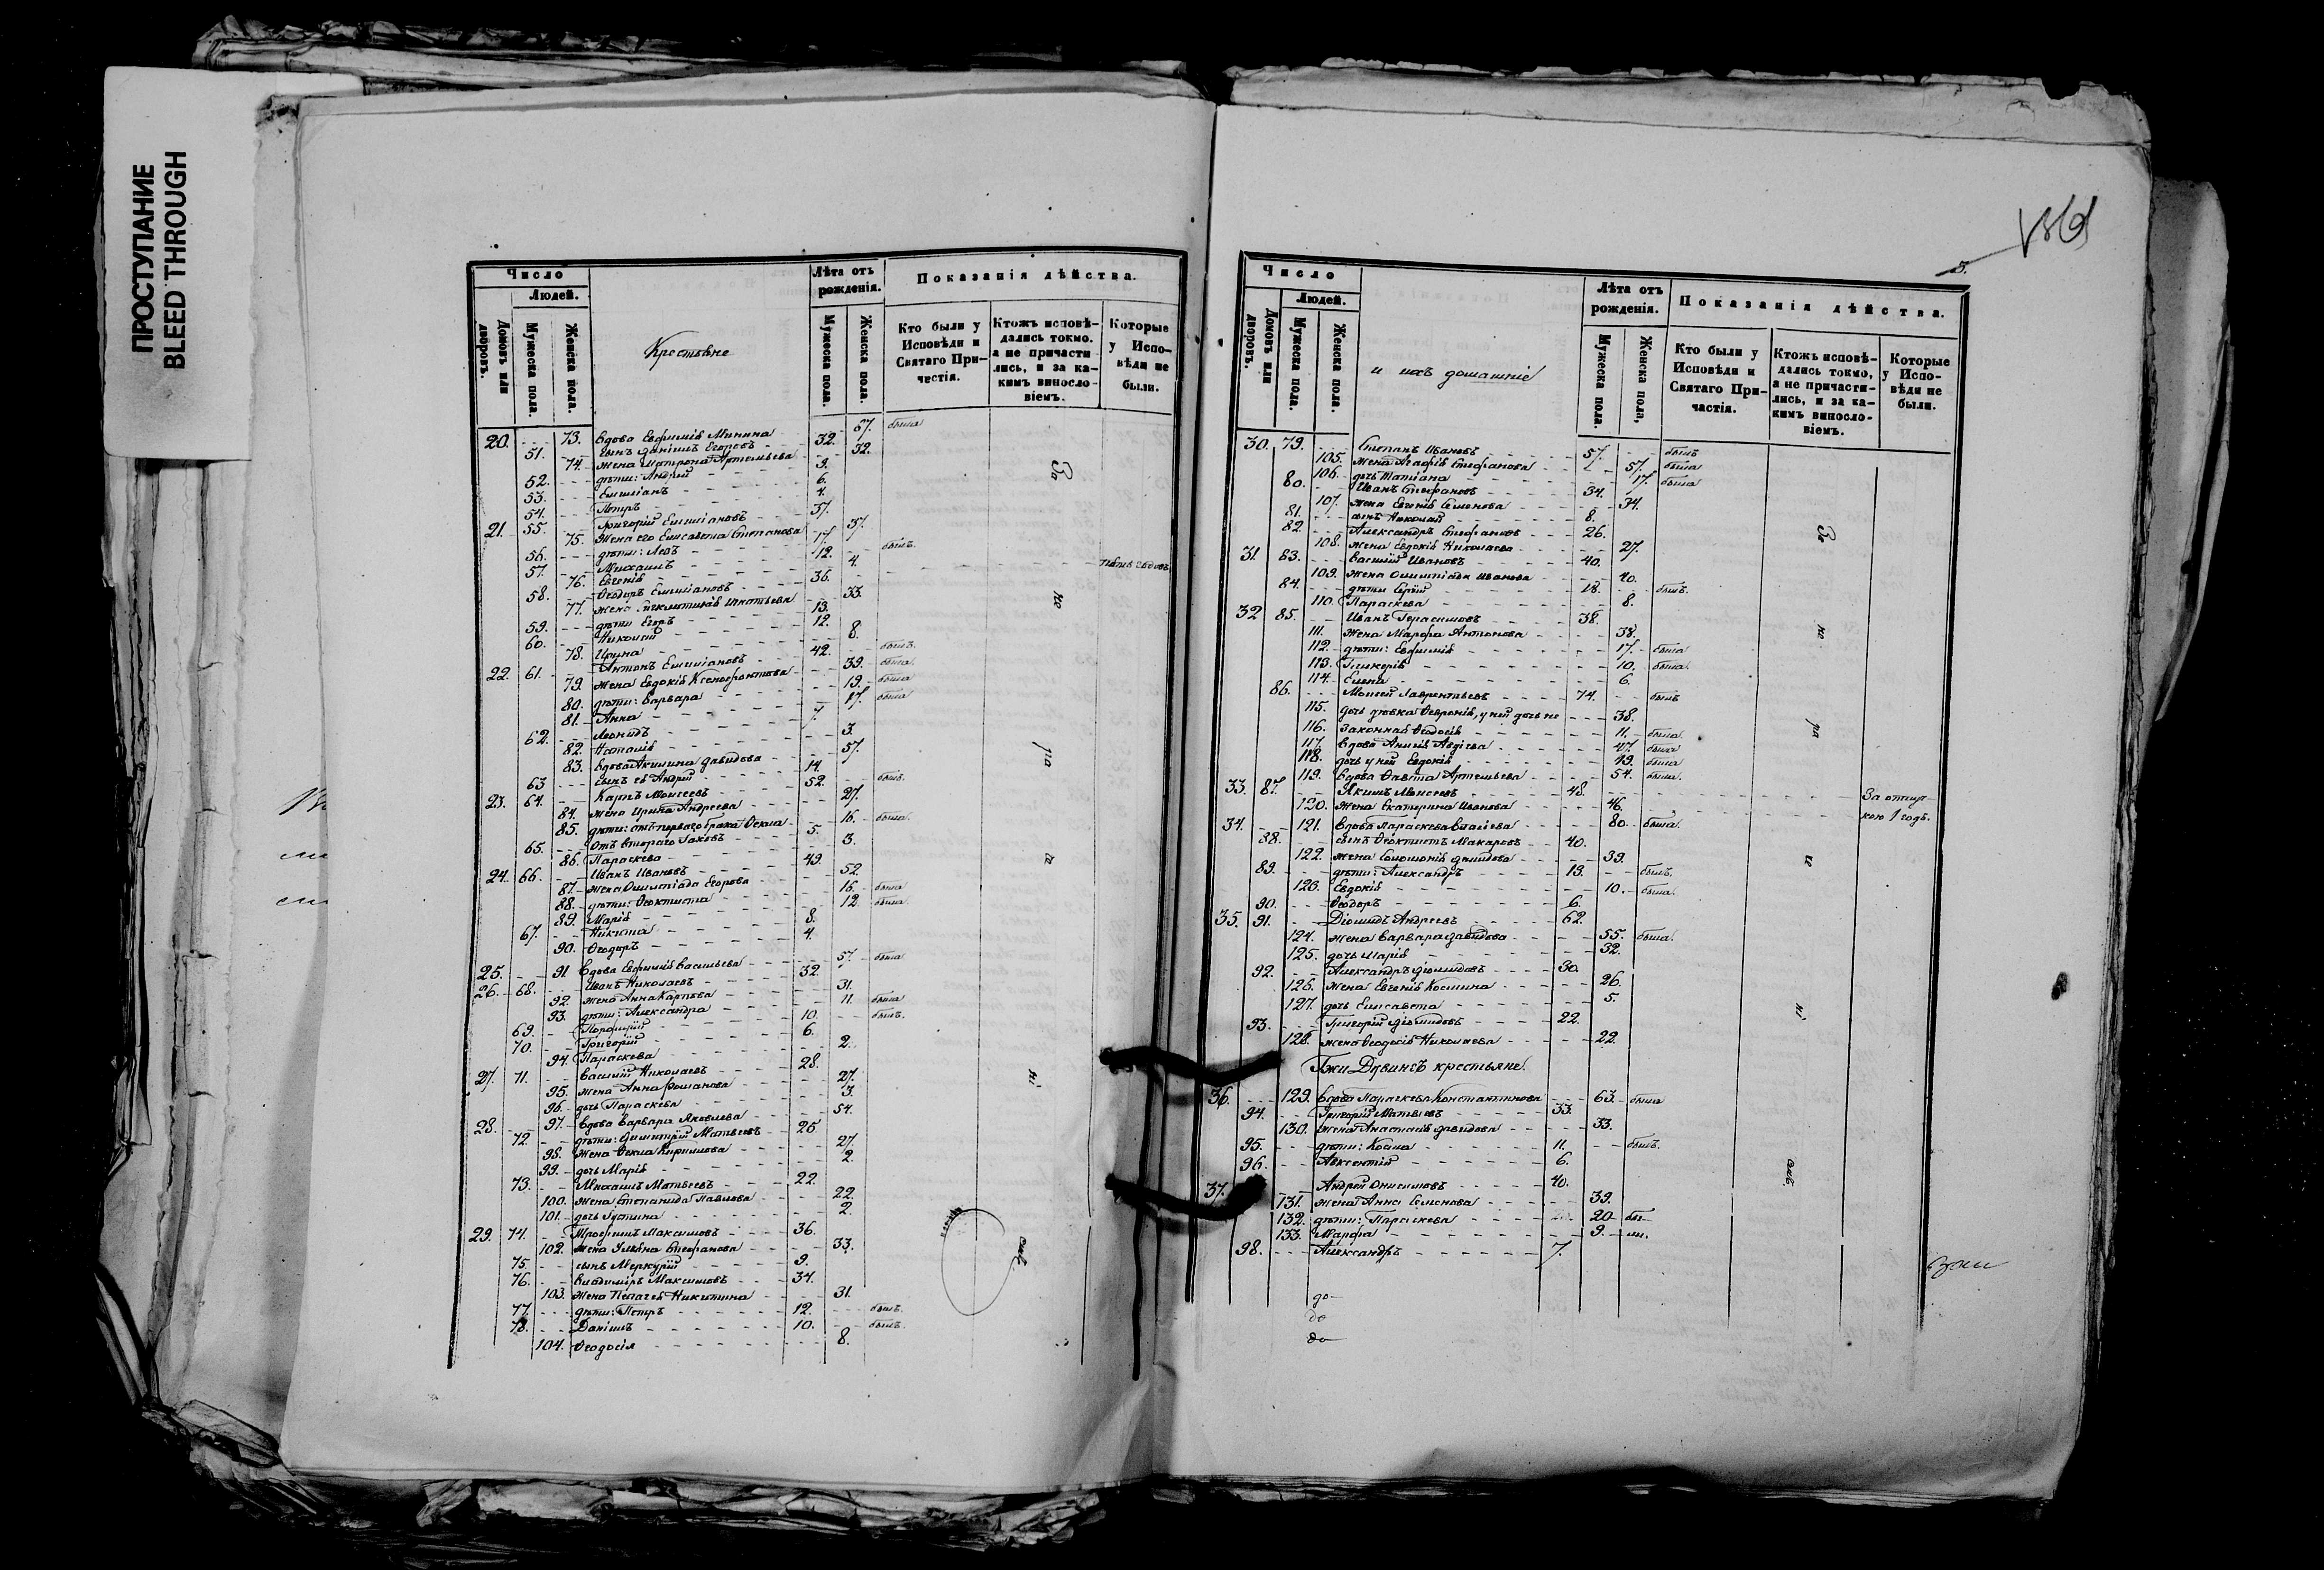 ПРОСТУПАНИЕ
BLEED THROUGH
Число
Людей.
Домовъ или дворовъ.
Мужеска пола.
Женска пола.
Крестьяне
Лѣта отъ рожденія.
Мужеска пола.
Женска пола.
Показанія дѣйства.
Кто были у Исповѣди и Святаго Причастія.
Ктожъ исповѣдались токмо, а не причастились, и за какимъ винословіемъ.
Которые у Исповѣди не были.
20. 73. Вдова Евфимія Минина 57. была
51. сынъ Даніилъ Егоровъ 32.
74. жена Матрона Артемьева 32.
52. дѣти: Андрей 9.
53. Емиліанъ 6.
54. Петръ 4.
21. 55. Григорій Емиліановъ 37.
75. Жена его Елисавета Степанова 37.
56. дѣти: Левъ 17.
57. Михаилъ 12. былъ.
76. Евгенія 4.
58. Ѳеодоръ Емиліановъ 36.
77. жена Игнатьева 33.
59. дѣти Егоръ 13.
60. Николай 12.
78. Ирина 8.
22. 61. Антонъ Емиліановъ 42. былъ.
79. жена Евдокія Ксенофонтова 39. была.
80. дѣти: Варвара 19. была
81. Анна 17. была
62. Леонидъ 7.
82. Наталія 3.
83. Вдова Акилина Давидова 57.
63 сынъ ея Андрей 14.
23. 64. Карпъ Моисеевъ 52. былъ.
84. жена Ирина Андреева 27.
85. дѣти: отъ перваго брака Ѳекла 16. была.
65. Отъ втораго Іаковъ 5.
86. Параскева 3.
24. 66. Иванъ Ивановъ 49.
87. жена Олимпіада Егорова 52.
88. дѣти: Ѳеоктиста 16. была
89. Марія 12. была
67. Никита 8.
90. Ѳеодоръ 4.
25. 91. Вдова Евфимія Васильева 57. была
26. 68. Иванъ Николаевъ 32.
92. жена Анна Карпова 31.
93. дѣти: Александра 11. была
69. Порфирій 10. былъ.
70. Григорій 6.
94. Параскева 2.
27. 71. Василій Николаевъ 28.
95. жена Анна Романова 27.
96. дочь Параскева 3.
28. 97. Вдова Варвара Яковлева 54.
72. дѣти: Димитрій Матвеевъ 25
98. жена Ѳекла Кириллова 27.
99. дочь Марія 2.
73. Михаилъ Матвеевъ 22.
100. жена Степанида Павлова 22.
101. дочь Іустина 2.
29. 74. Трофимъ Максимовъ 36.
102. жена Ульяна Стефанова 33.
75. сынъ Меркурій 9.
76. Владиміръ Максимовъ 34.
103. жена Пелагея Никитина 31.
77. дѣти: Петръ 12. былъ.
78. Даніилъ 10. былъ.
104. Ѳеодосія 8.
5.
Число
Людей.
Домовъ или дворовъ.
Мужеска пола.
Женска пола.
и ихъ домашніе
Лѣта отъ рожденія.
Мужеска пола.
Женска пола,
Показанія дѣйства.
Кто были у Исповѣди и Святаго Причастія.
Ктожъ исповѣдались токмо, а не причастились, и за какимъ винословіемъ.
Которые у Исповѣди не были.
30. 79. Степанъ Ивановъ 57. былъ
105. жена Агафія Стефанова 57. была
106. дочь Татіана 17. была
80. Иванъ Стефановъ 34.
107. жена Евгенія Семенова 34.
81. сынъ Николай 8.
82. Александръ Стефановъ 26.
108. жена Евдокія Николаева 27.
31. 83. Василій Ивановъ 40.
109. жена Олимпіада Иванова 40.
84. дѣти Сергій 18. былъ.
110. Параскева 8.
32 85. Иванъ Герасимовъ 38.
111. жена Марфа Антонова 38.
112. дѣти: Евфимія 17. была
113. Гликерія 10. была.
114. Елена 6.
86. Моисей Лаврентьевъ 74. былъ
115. дочь дѣвка Ѳевронія, у ней дочь не 38.
116. законная Ѳеодосія 11. была.
117. Вдова Анисія Авдіева 47. была
118. дочь у ней Евдокія 19. была
119. Вдова Ѳавста Артемьева 54. была.
33. 87. Якимъ Моисеевъ 48. За отлучкою 1 годъ.
120. жена Екатерина Иванова 46.
34. 121. Вдова Параскева Власіева 80. была.
88. сынъ Ѳеоктистъ Макаровъ 40.
122. жена Соломонія Демидова 39.
89. дѣти: Александръ 13. былъ.
123. Евдокія 10. была.
90. Ѳеодоръ 6.
35. 91. Діомидъ Андреевъ 62.
124. жена Варвара Давидова 55. была.
125. дочь Марія 32.
92. Александръ Діомидовъ 30.
126. жена Евгенія Косьмина 26.
127. дочь Елисавета 5.
93. Григорій Діомидовъ 22.
128. жена Ѳеодосія Николаева 22.
крестьяне.
36. 129. Вдова Параскева Константинова 63. была
94. Григорій Матвіевъ 33.
130. Жена Анастасія Давидова 33.
95. дѣти: Косма 11. былъ.
96. Авксентій 6.
37. Андрей Онисимовъ 40.
131. жена Анна Семенова 39.
132. дѣти: Параскева 20 бы-
133. Марфа 9. ли.
98. Александръ 7.
до-
до
до